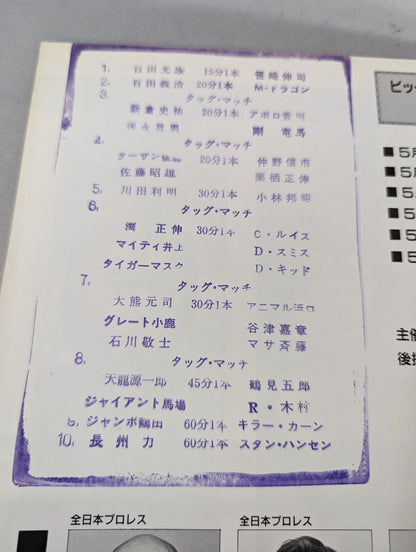 1. 百田光雄 15分1本 笹崎伸司
2. 百田義浩 20分1本 M・ドラゴン
3. タッグ・マッチ
新倉史祐 20分1本 アポロ菅原
保永昇男 剛 竜馬
4. タッグ・マッチ
ターザン後藤 20分1本 仲野信市
佐藤昭雄 栗栖正伸
5. 川田利明 30分1本 小林邦昭
6. タッグ・マッチ
渕 正伸 30分1本 C・ルイス
マイティ井上 D・スミス
タイガーマスク D・キッド
7. タッグ・マッチ
大熊元司 30分1本 アニマル浜口
グレート小鹿 谷津嘉章
石川敬士 マサ斉藤
8. タッグ・マッチ
天龍源一郎 45分1本 鶴見五郎
ジャイアント馬場 R・木村
9. ジャンボ鶴田 60分1本 キラー・カーン
10. 長州 力 60分1本 スタン・ハンセン
ビッ
■5月
■5
■5
■5
■5
■5
主催
後援
全日本プロレス
全日本プロレス